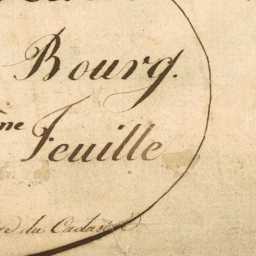 Bourg.
me Feuille
du Cadastre